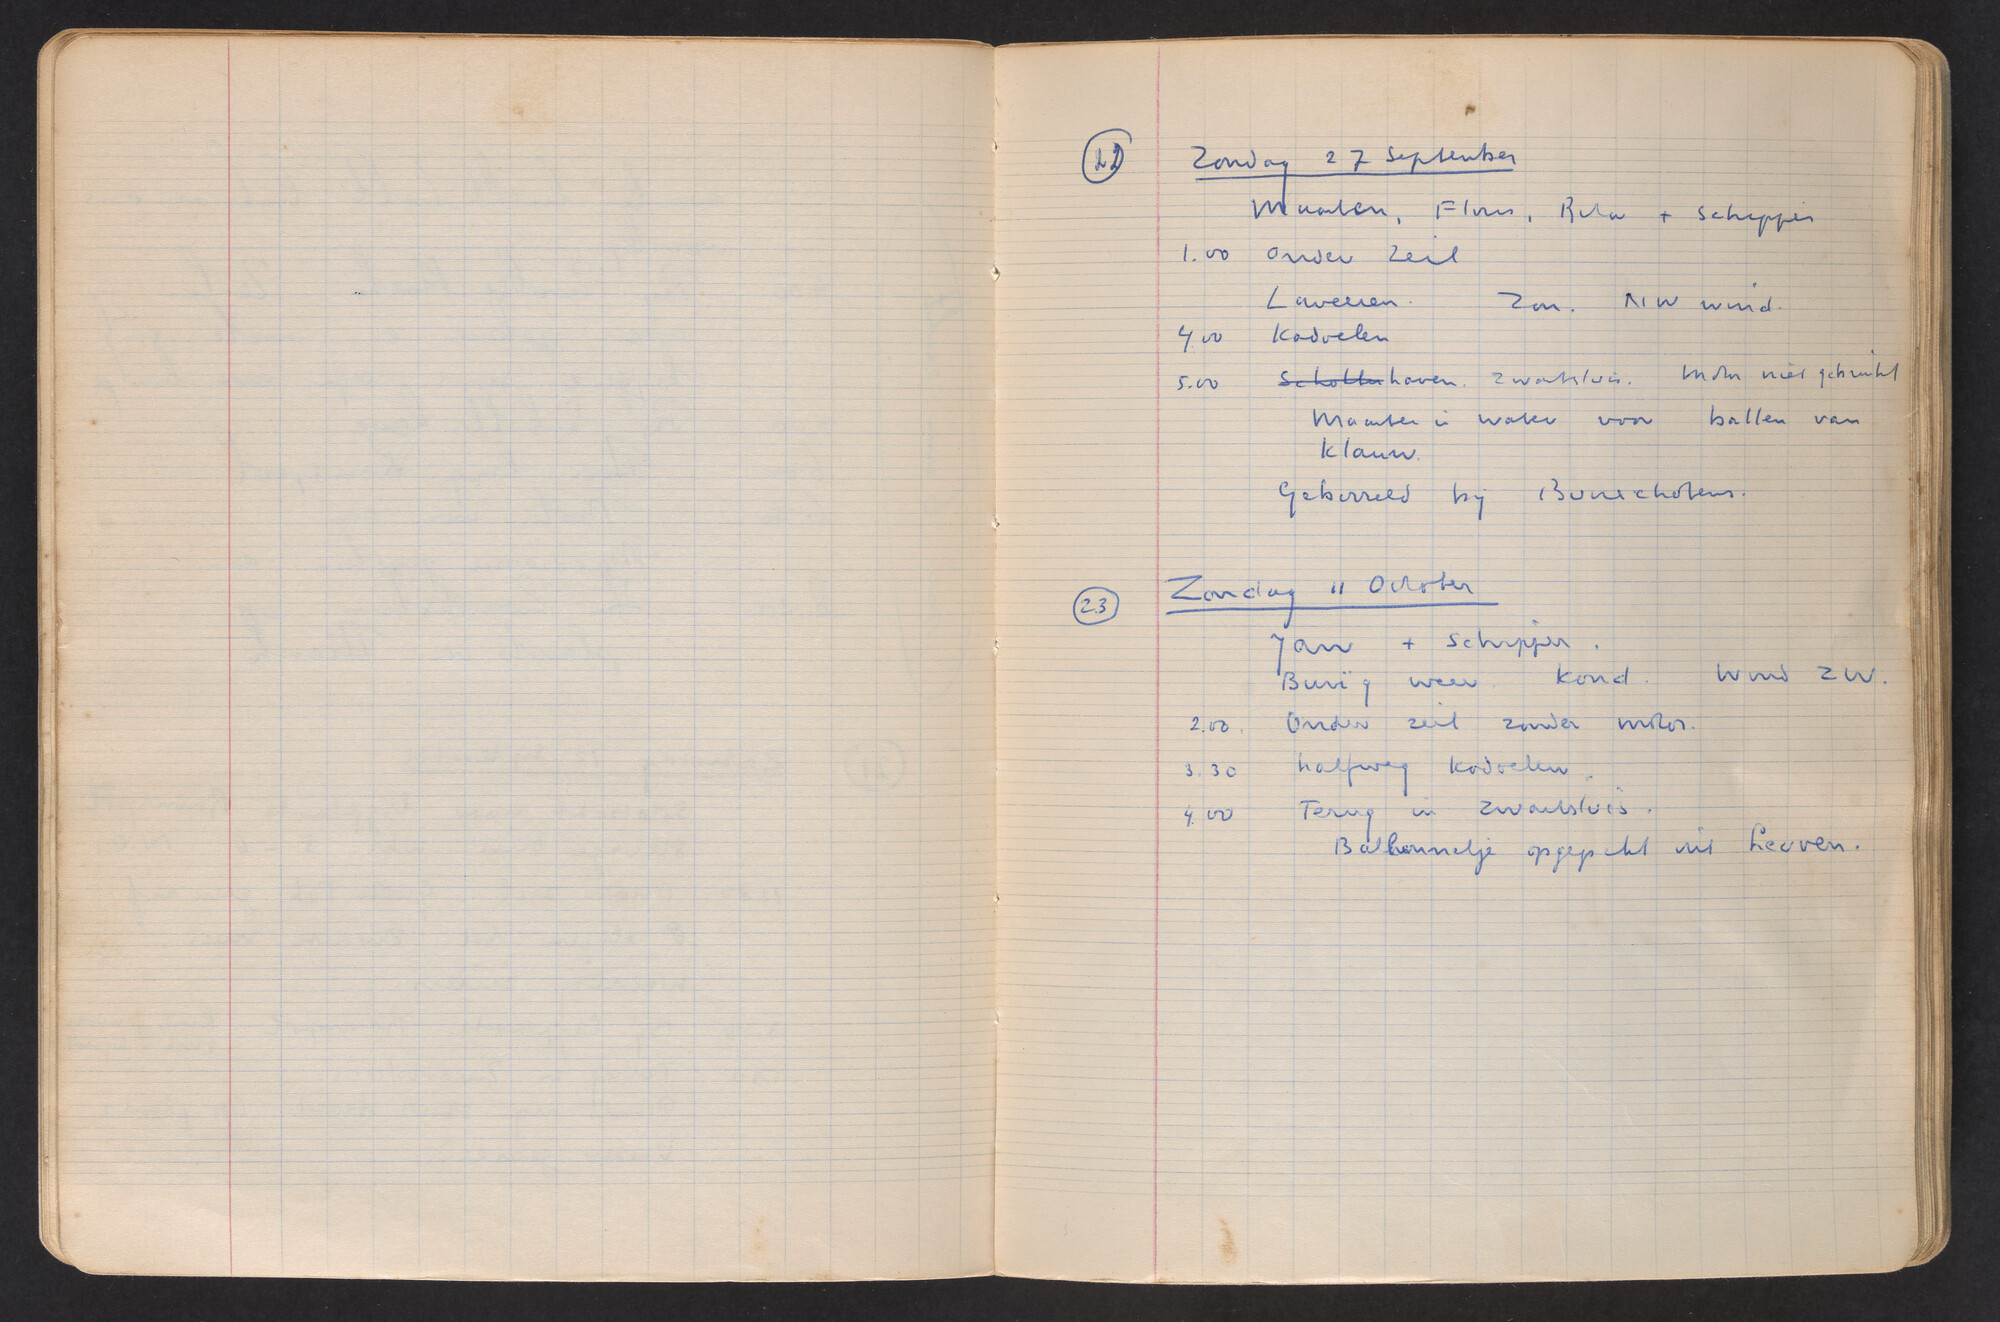 22 Zondag 27 September
Maarten, Floris, Rita + Schipper
1.00 Onder Zeil
Laveeren. Zon. NW wind.
4.00 Kadoelen
5.00 Schokkerhaven. Zwartsluis. Motor niet gebruikt
Maarten in water voor ballen van
Klauw.
Geborreld bij Bunschotens.
23 Zondag 11 October
Jan + Schipper.
Buiïg weer. Koud. Wind ZW.
2.00. Onder zeil zonder motor.
3.30 halfweg Kadoelen.
4.00 Terug in Zwartsluis.
Ballonnetje opgepikt uit